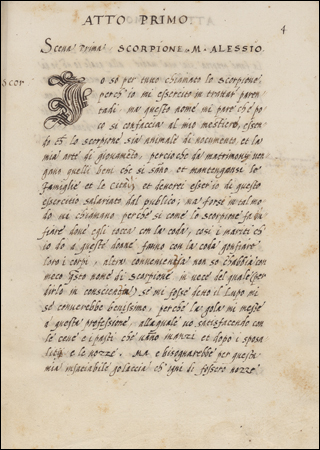 4
ATTO PRIMO
Scena prima SCORPIONE. M. ALESSIO.
Scor
Io so per tutto chiamato lo scorpione
perch'io mi essercito in trovar paren
tadi ma questo nome mi pare che po
co si confaccia al mio mestiero, essen
do ch lo scorpione sia animale di nocumento et la
mia arte di giovamento, percioche da matrimonij ven
gano quelli beni che si sano et mantengonsi le
famiglie et le Città et doverei esser'io di questo
essercitio salariato dal publico; ma forse in tal mo
do mi chiamano perche si come lo scorpione fa
fiare dove egli tocca con la coda, così i mariti ch
io do a queste donne fanno con la coda gonfiare
loro i corpi, altra convenientia non so c'habbia con
meco esso nome di scorpione in vece del quale (per
dirlo in conscientia) se mi fosse detto il Lupo mi
si converebbe benissimo, perche la gola mi mette
a questa professione, alla quale vo satisfacendo con
le cene e i pasti che vanno inanzi et dopo i sposa
litij e le nozze. Ma e bisognarebbe per questa
mia insaciabile golaccia ch'ogni di fossero nozze